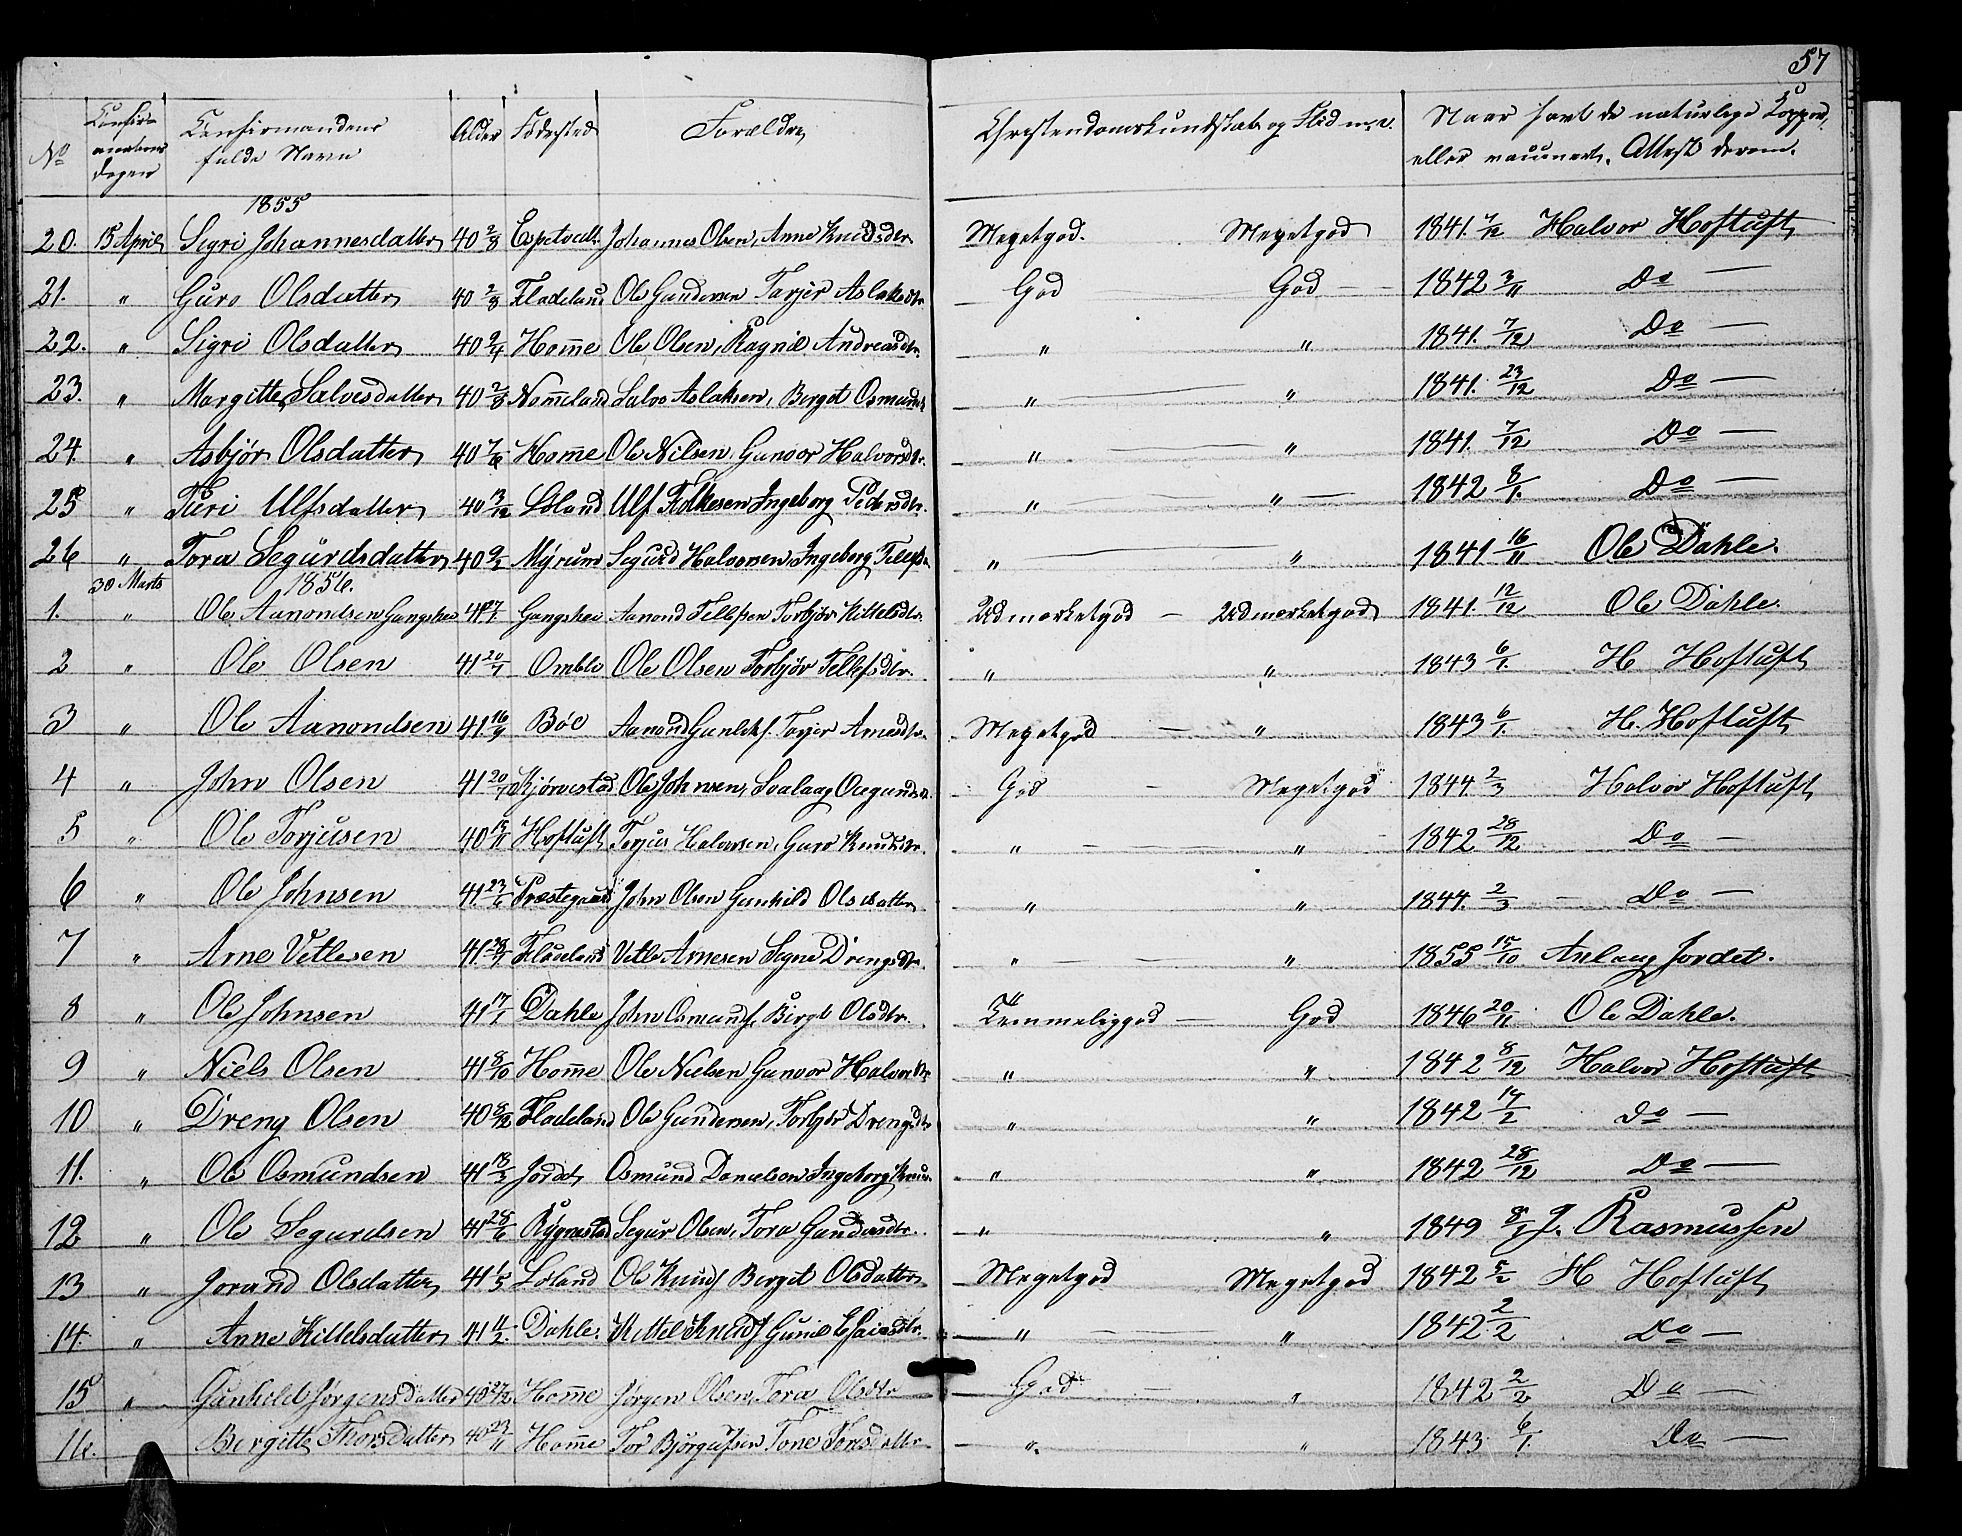 57
No Confirmations Dagen Confirmandens fulde Navn Alder Fødested Forældre Christendomskundskab og Flid m.v. Naar havt de naturlige Kopper, eller vaccineret. Attest derom.
1855
20. 15 April Sigri Johannesdatter 40 2/8 Espetvedt Johannes Olsen, Anne Knudsdtr Megetgod. Megetgod 1841. 7/12 Halvor Hoftuft
21. " Guro Olsdatter 40 2/8 Fladeland Ole Gundersen Torjer Aslaksdtr God God 1842 3/11 Do
22. " Sigri Olsdatter 40 9/4 Homme Ole Olsen, Ragnil Andreasdtr. " " 1841. 7/12 Do
23. " Margitte Salvesdatter 40 2/8 Nomeland Salve Aslaksen, Berget Osmunds " " 1841. 23/12 Do
24. " Asbjør Olsdatter 40 7/6 Homme Ole Nilsen, Gunvor Halvorsdtr. " " 1841. 7/12 Do
25 " Turi Ulfsdatter 40 13/12 Løland Ulf Folkesen Ingeborg Pedersdtr. " " 1842 8/1. Do
26 " Tora Segurdsdatter 40 9/2 Myrum Segurd Halvorsen, Ingeborg Tellefsd " " 1841 16/11 Ole Dahle.
30 Marts 1856.
1. " Ole Aanondsen Gangshei 41 27/1 Gangshei Aanond Tellefsen Torbjør Kittelsdtr. Udmerketgod Udmerketgod 1841. 12/12 Ole Dahle.
2 " Ole Olsen 41 20/7 Omble Ole Olsen Torbjør Tellefsdtr. " " 1843 6/1. H Hoftuft
3 " Ole Aanondsen 41 16/9 Böe Aanond Gunleks. Torjer Arnesdtr. Megetgod " 1843 6/1. H. Hoftuft
4 " John Olsen 41 20/7 Kjørvestad Ole Johnsen, Svalaug Ougundsd. God Megetgod 1844. 2/3 Halvor Hoftuft
5 " Ole Torjusen 40 15/11 Hoftuft Torjus Halvorsen, Guro Knutsdtr. " " 1842 28/12 Do
6 " Ole Johnsen 41 23/6 Præstegaard John Olsen Gunhild Olsdatter " " 1844. 2/3 Do
7 " Arne Vetlesen 41 28/7 Fladeland Vetle Arnesen Segne Drengsdtr. " " 1855 15/10 Aslaug Jordet.
8 " Ole Johnsen 41 17/1 Dahle John Osmunds. Birgit Olsdtr. Temmeliggod God 1846 20/11 Ole Dahle.
9 " Niels Olsen 41 8/10 Homme Ole Nielsen Gunvor Halvorsdtr " " 1842 8/12 Halvor Hoftuft
10 " Dreng Olsen 40 8/12 Fladeland Ole Gundersen, Torbjør Drengsdtr " " 1842 14/2 do
11. " Ole Osmundsen 41 18/3 Jordet Osmund Danielsen Ingeborg Knuds. " " 1842 28/12 Do
12 " Ole Segurdsen 41 28/6 Rygnestad Segur Olsen, Tora Gundersdtr. " " 1849 8/1 J. Rasmussen
13 " Jorand Olsdatter 41 1/5 Løland Ole Knuds Berget Olsdatter Megetgod Megetgod 1842 5/2 H Hoftuft
14. " Anne Kittelsdatter 41 11/2. Dahle. Kittel Knuds Gunil Esaiasdtr. " " 1842 2/2 Do
15 " Gunhild Jørgensdatter 40 27/12. Homme Jørgen Olsen, Tora Olsdtr God " 1842 2/2 Do
16. Birgitte Thorsdatter 40 23/11 Homme Tor Bjørgufsen Tone Torsdatter " " 1843 6/1. Do